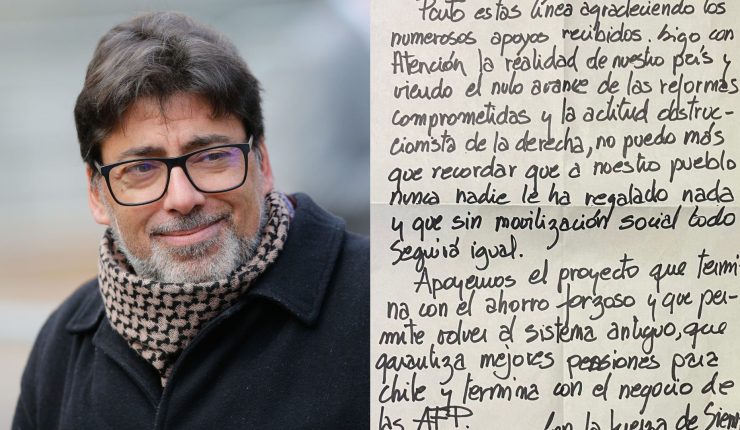 Parto estas línea agradeciendo los
numerosos apoyos recibidos. Sigo con
Atención la realidad de nuestro país y
viendo el nulo avance de las reformas
comprometidas y la actitud obstruc-
cionista de la derecha, no puedo más
que recordar que a nuestro pueblo
nunca nadie le ha regalado nada
y que sin movilización social todo
seguirá igual.
Apoyemos el proyecto que termi-
na con el ahorro forzoso y que per-
mite volver al sistema antiguo, que
garantiza mejores pensiones para
Chile y termina con el negocio de
las AFP.
Con la fuerza de Siem